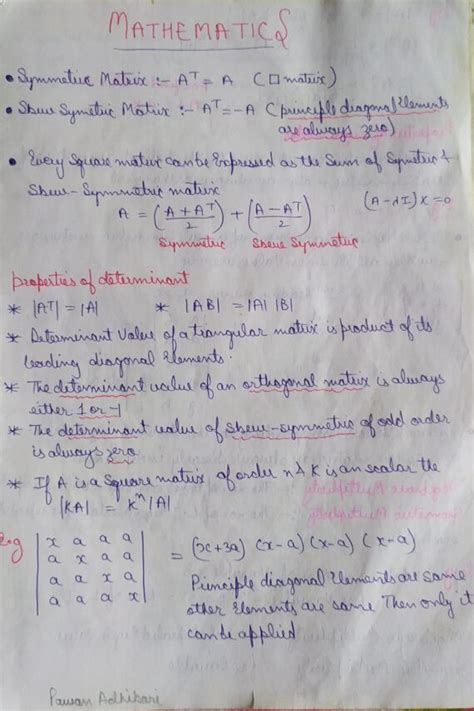 MATHEMATICS
• Symmetric Matrix :- Aᵀ = A (□ matrix)
• Skew Symetric Matrix :- Aᵀ = -A (principle diagonal Elements
are always zero)
• Every Square matrix can be Expressed as the Sum of Symetric &
Skew-Symmetric matrix
A = (A + Aᵀ / 2) + (A - Aᵀ / 2) (A - λI) X = 0
Symmetric Skew Symmetric
properties of determinant
* |Aᵀ| = |A| * |AB| = |A| |B|
* Determinant Value of a triangular matrix is product of its
leading diagonal Elements.
* The determinant value of an orthogonal matrix is always
either 1 or -1
* The determinant value of skew-symmetric of odd order
is always zero
* If A is a Square matrix, of order n & K is an scalar the
|KA| = Kⁿ |A|
E.g | x a a a | = (x+3a) (x-a) (x-a) (x-a)
| a x a a |
| a a x a | Principle diagonal Elements are same
| a a a x | other Elements are same Then only it
can be applied
Pawan Adhikari